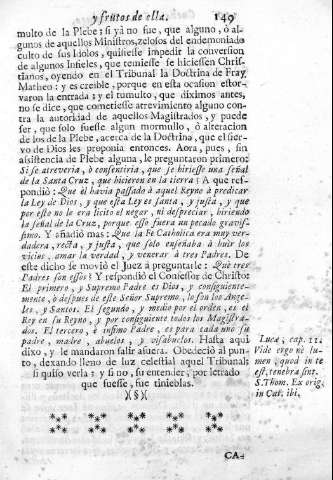 y frutos de ella. 149
multo de la Plebe: si yà no fue, que alguno, ò al-
gunos de aquellos Ministros, zelosos del endemoniado
culto de sus Idolos, quisiesse impedir la conversion
de algunos Infieles, que temiesse se hiciessen Chris-
tianos, oyendo en el Tribunal la Doctrina de Fray
Matheo: y es creible, porque en esta ocasion estor-
varon la entrada; y el tumulto, que diximos antes,
no se dice, que cometiesse atrevimiento alguno con-
tra la autoridad de aquellos Magistrados, y puede
ser, que solo fuesse algun mormullo, ò alteracion
de los de la Plebe, acerca de la Doctrina, que el sier-
vo de Dios les proponia entonces. Aora, pues, sin
assistencia de Plebe alguna, le preguntaron primero:
Si se atreveria, ò consentiria, que se hiriesse una señal
de la Santa Cruz, que hicieron en la tierra? A que res-
pondiò: Que èl havia passado à aquel Reyno à predicar
la Ley de Dios, y que esta Ley es santa, y justa, y que
por esto no le era licito el negar, ni despreciar, hiriendo
la señal de la Cruz, porque esso fuera un pecado gravis-
simo. Y añadiò mas: Que la Fè Catholica era muy ver-
dadera, recta, y justa, que solo enseñaba à huir los
vicios, amar la verdad, y venerar à tres Padres. De
este dicho se moviò el Juez à preguntarle: Què tres
Padres son essos? Y respondiò el Confessor de Christo:
El primero, y Supremo Padre es Dios, y consiguiente-
mente, ò despues de este Señor Supremo, lo son los Ange-
les, y Santos. El segundo, y medio por el orden, es el
Rey en su Reyno, y por consiguiente todos los Magistra-
dos. El tercero, è infimo Padre, es para cada uno su
padre, madre, abuelos, y visabuelos. Hasta aqui
dixo, y le mandaron salir afuera. Obedeciò al pun-
to, dexando lleno de luz celestial aquel Tribunal;
si quiso verla: y si no, su entender, por letrado
que fuesse, fue tinieblas.
Lucæ, cap. 11.
Vide ergo nè lu-
men, quod in te
est, tenebræ sint.
S. Thom. Ex orig.
in Cat. ibi.
CA-